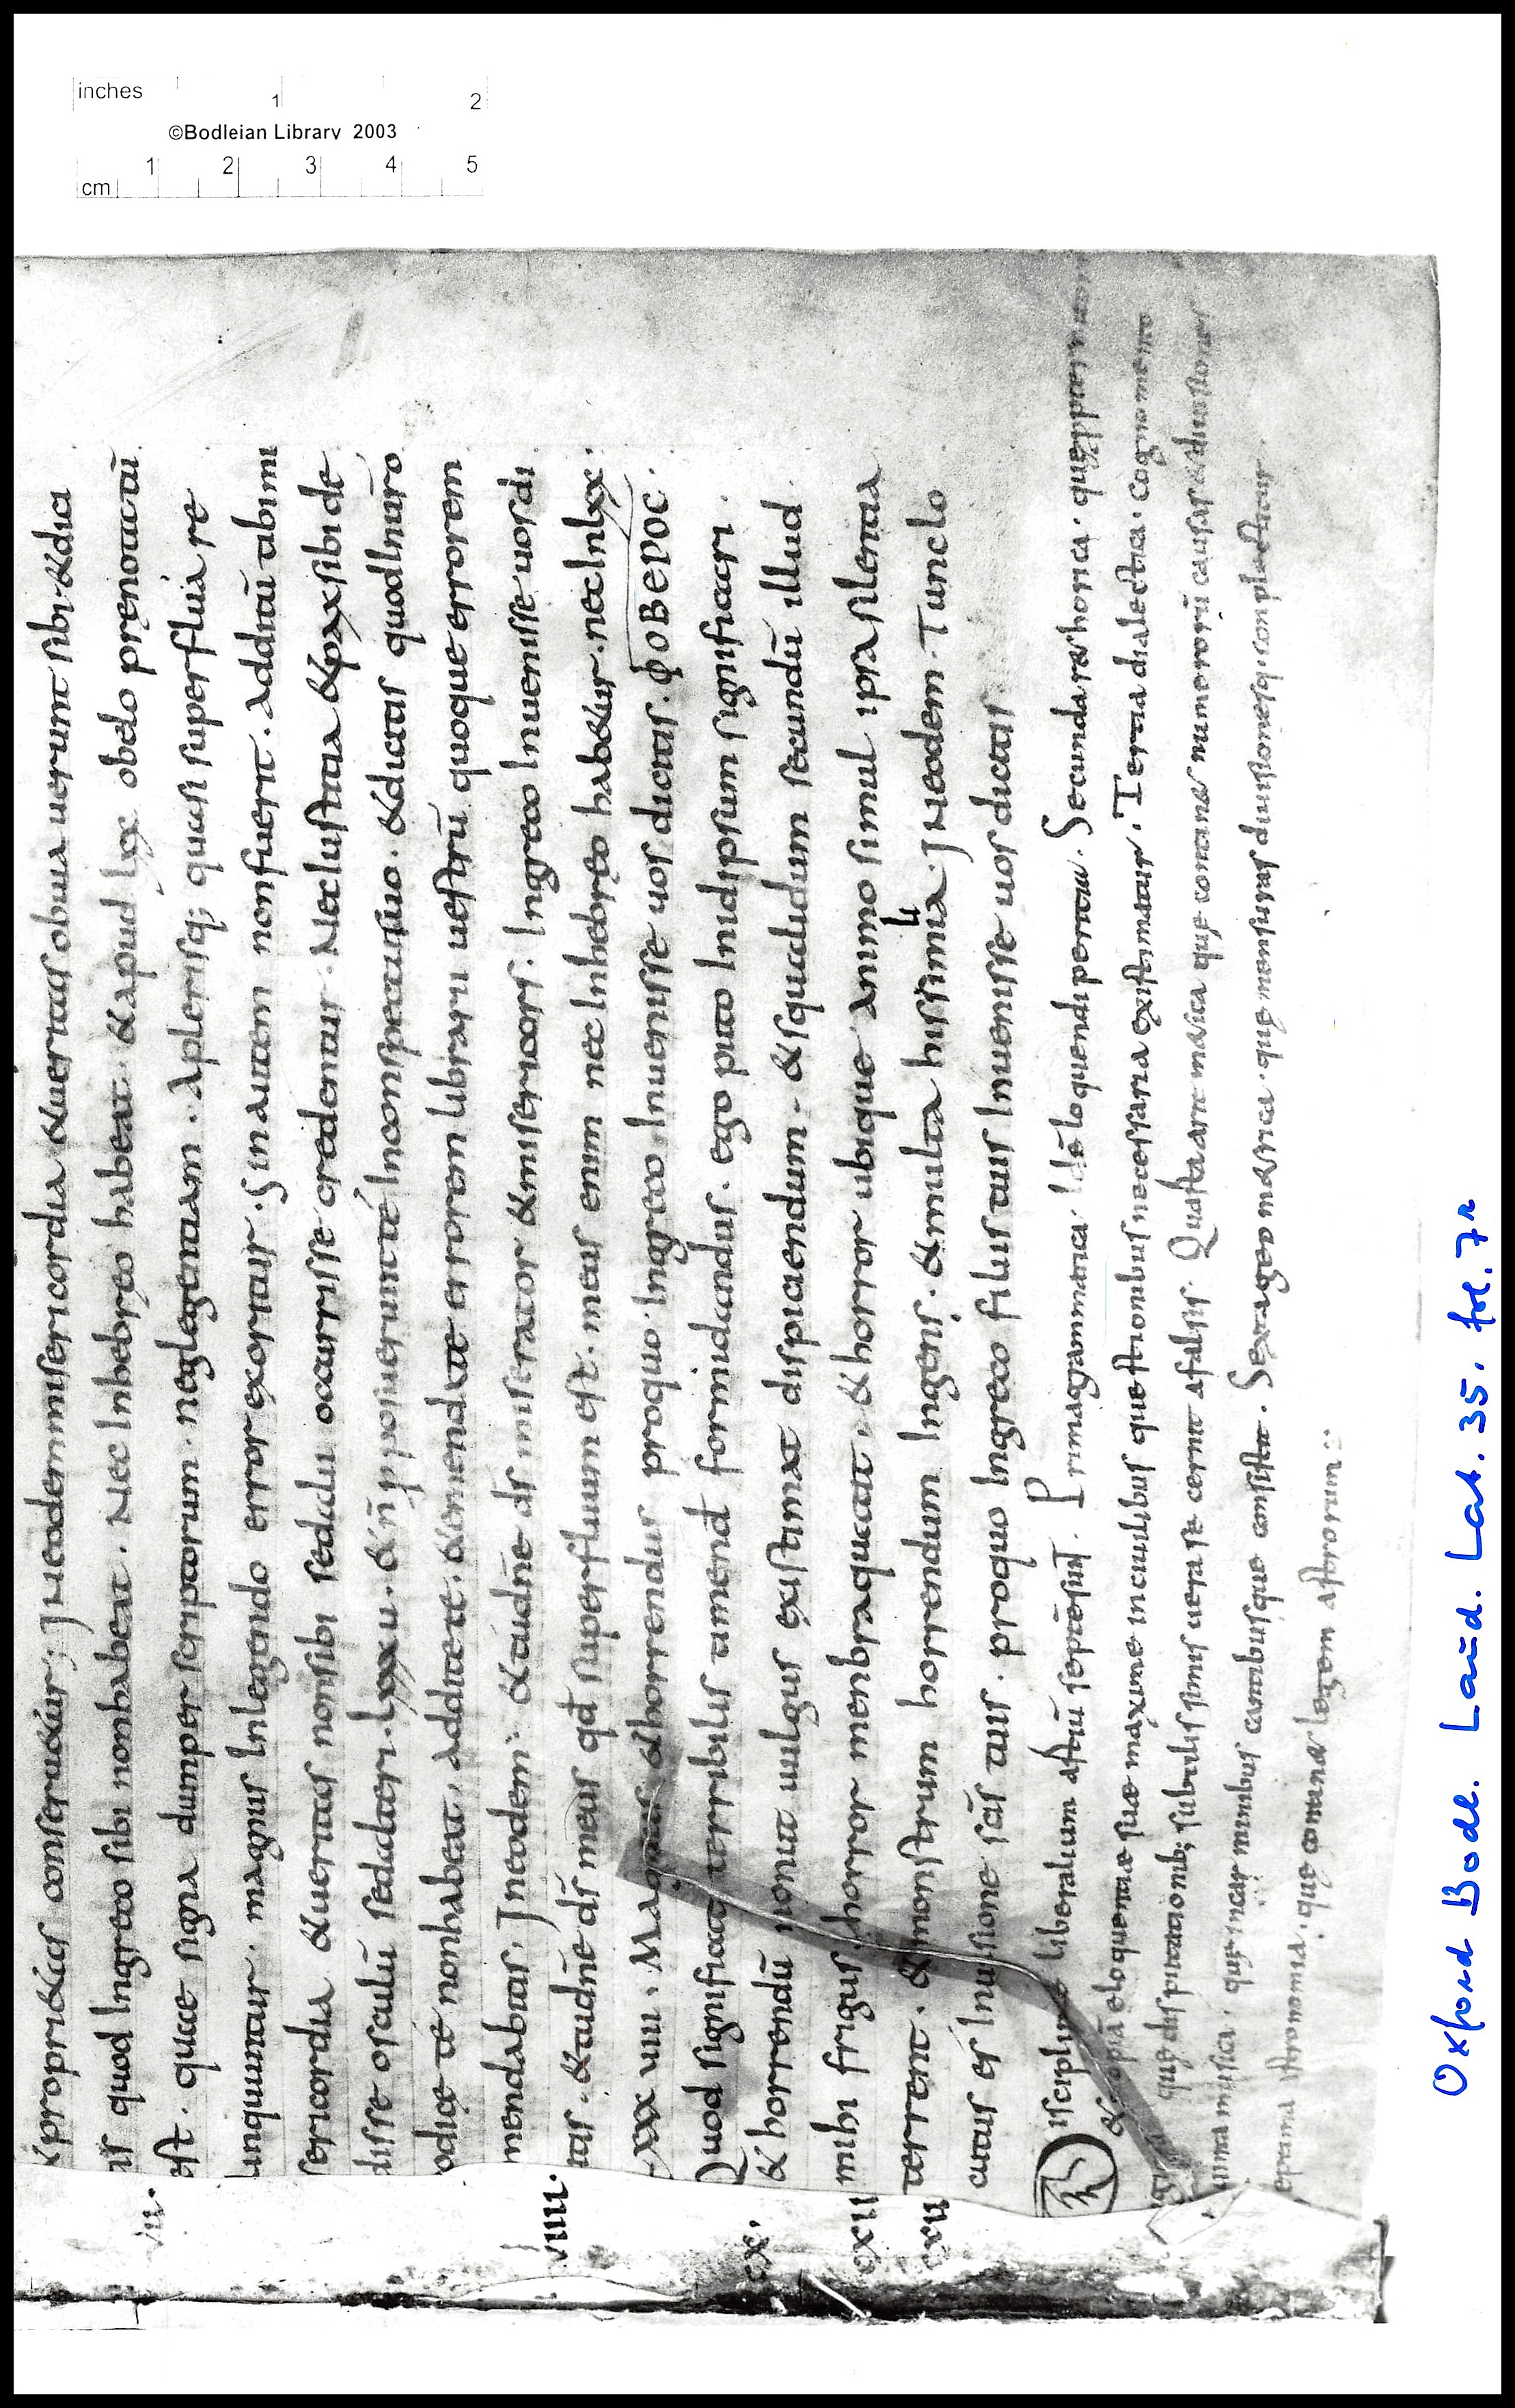 inches
1 2
©Bodleian Library 2003
1 2 3 4 5
cm
&propri&as conseru&ur; INeodem misericordia &ueritas obuia uerunt sibi. &dicitis
quod Ingreco sibi nonhabeat. Nec Inhebreo habeat. &apud lxx obelo prenotatū
est. quae signa dumper scriptorum neglegentiam. Aplerisq; quasi superflua re
linquuntur. magnus Inlegendo error exoritur. Sin autem nonfuerit. Additū ubi mi
sericordia &ueritas nonsibi sedalii occurrisse credentur. Nec Iustitia &pax sibi de
disse osculū sedalteri. lxxxu. &ñ pposuerunt té Inconspectusuo. &dicitis quodInur̄o
codice té nonhabeat. Addite té. &emendate errorem librarii uestrū quoque errorem
emendabitis. INeodem. &tudn̄e ds̄ miserator &misericors. Ingreco Inuenisse uosdi
citis. &tudn̄e ds̄ meus qd̄ superfluum est. meus enim nec Inhebreo hab&ur. nec Inlxx.
lxxxuiii. Magnus &horrendus proquo Ingreco Inuenisse uos dicitis. ΦΟΒΕΡΟC.
Quod significat terribilis timend̄ formidandus. ego puto Inidipsum significari.
&horrendū nonut uulgus existimat dispiciendum. &squalidum secundū illud
mihi frigus horror menbraquatit. &horror ubique animo simul ipsasilentia
terrent. &monstrum horrendum Ingens. &multa huissimilia. INeodem. Tunclo
cutus es Inuisione sc̄is tuis. proquo Ingreco filiis tuis Inuenisse uos dicitis.
Discipline liberalium artiū septēsunt. Primagrammatica Idē loquendiperitia. Secunda r&horica. que propter
eloquentiae suae maxime inciuilibus questionibus necessaria existimatur. Tertia dialectica. cognomento
que disputationib; subtilissimis uera secernit afalsis. Quarta arithmetica que contin& numerorū causas &diuisiones
musica. que incarminibus cantibusque consistit. Sexta geometrica. que mensuras diuisionesq; complectitur.
eptima Astronomia. que contin& legem astrorum:
uii.
uiiii.
cx.
cxii
cxii
li
Oxford Bodl. Laud. Lat. 35. fol. 7r